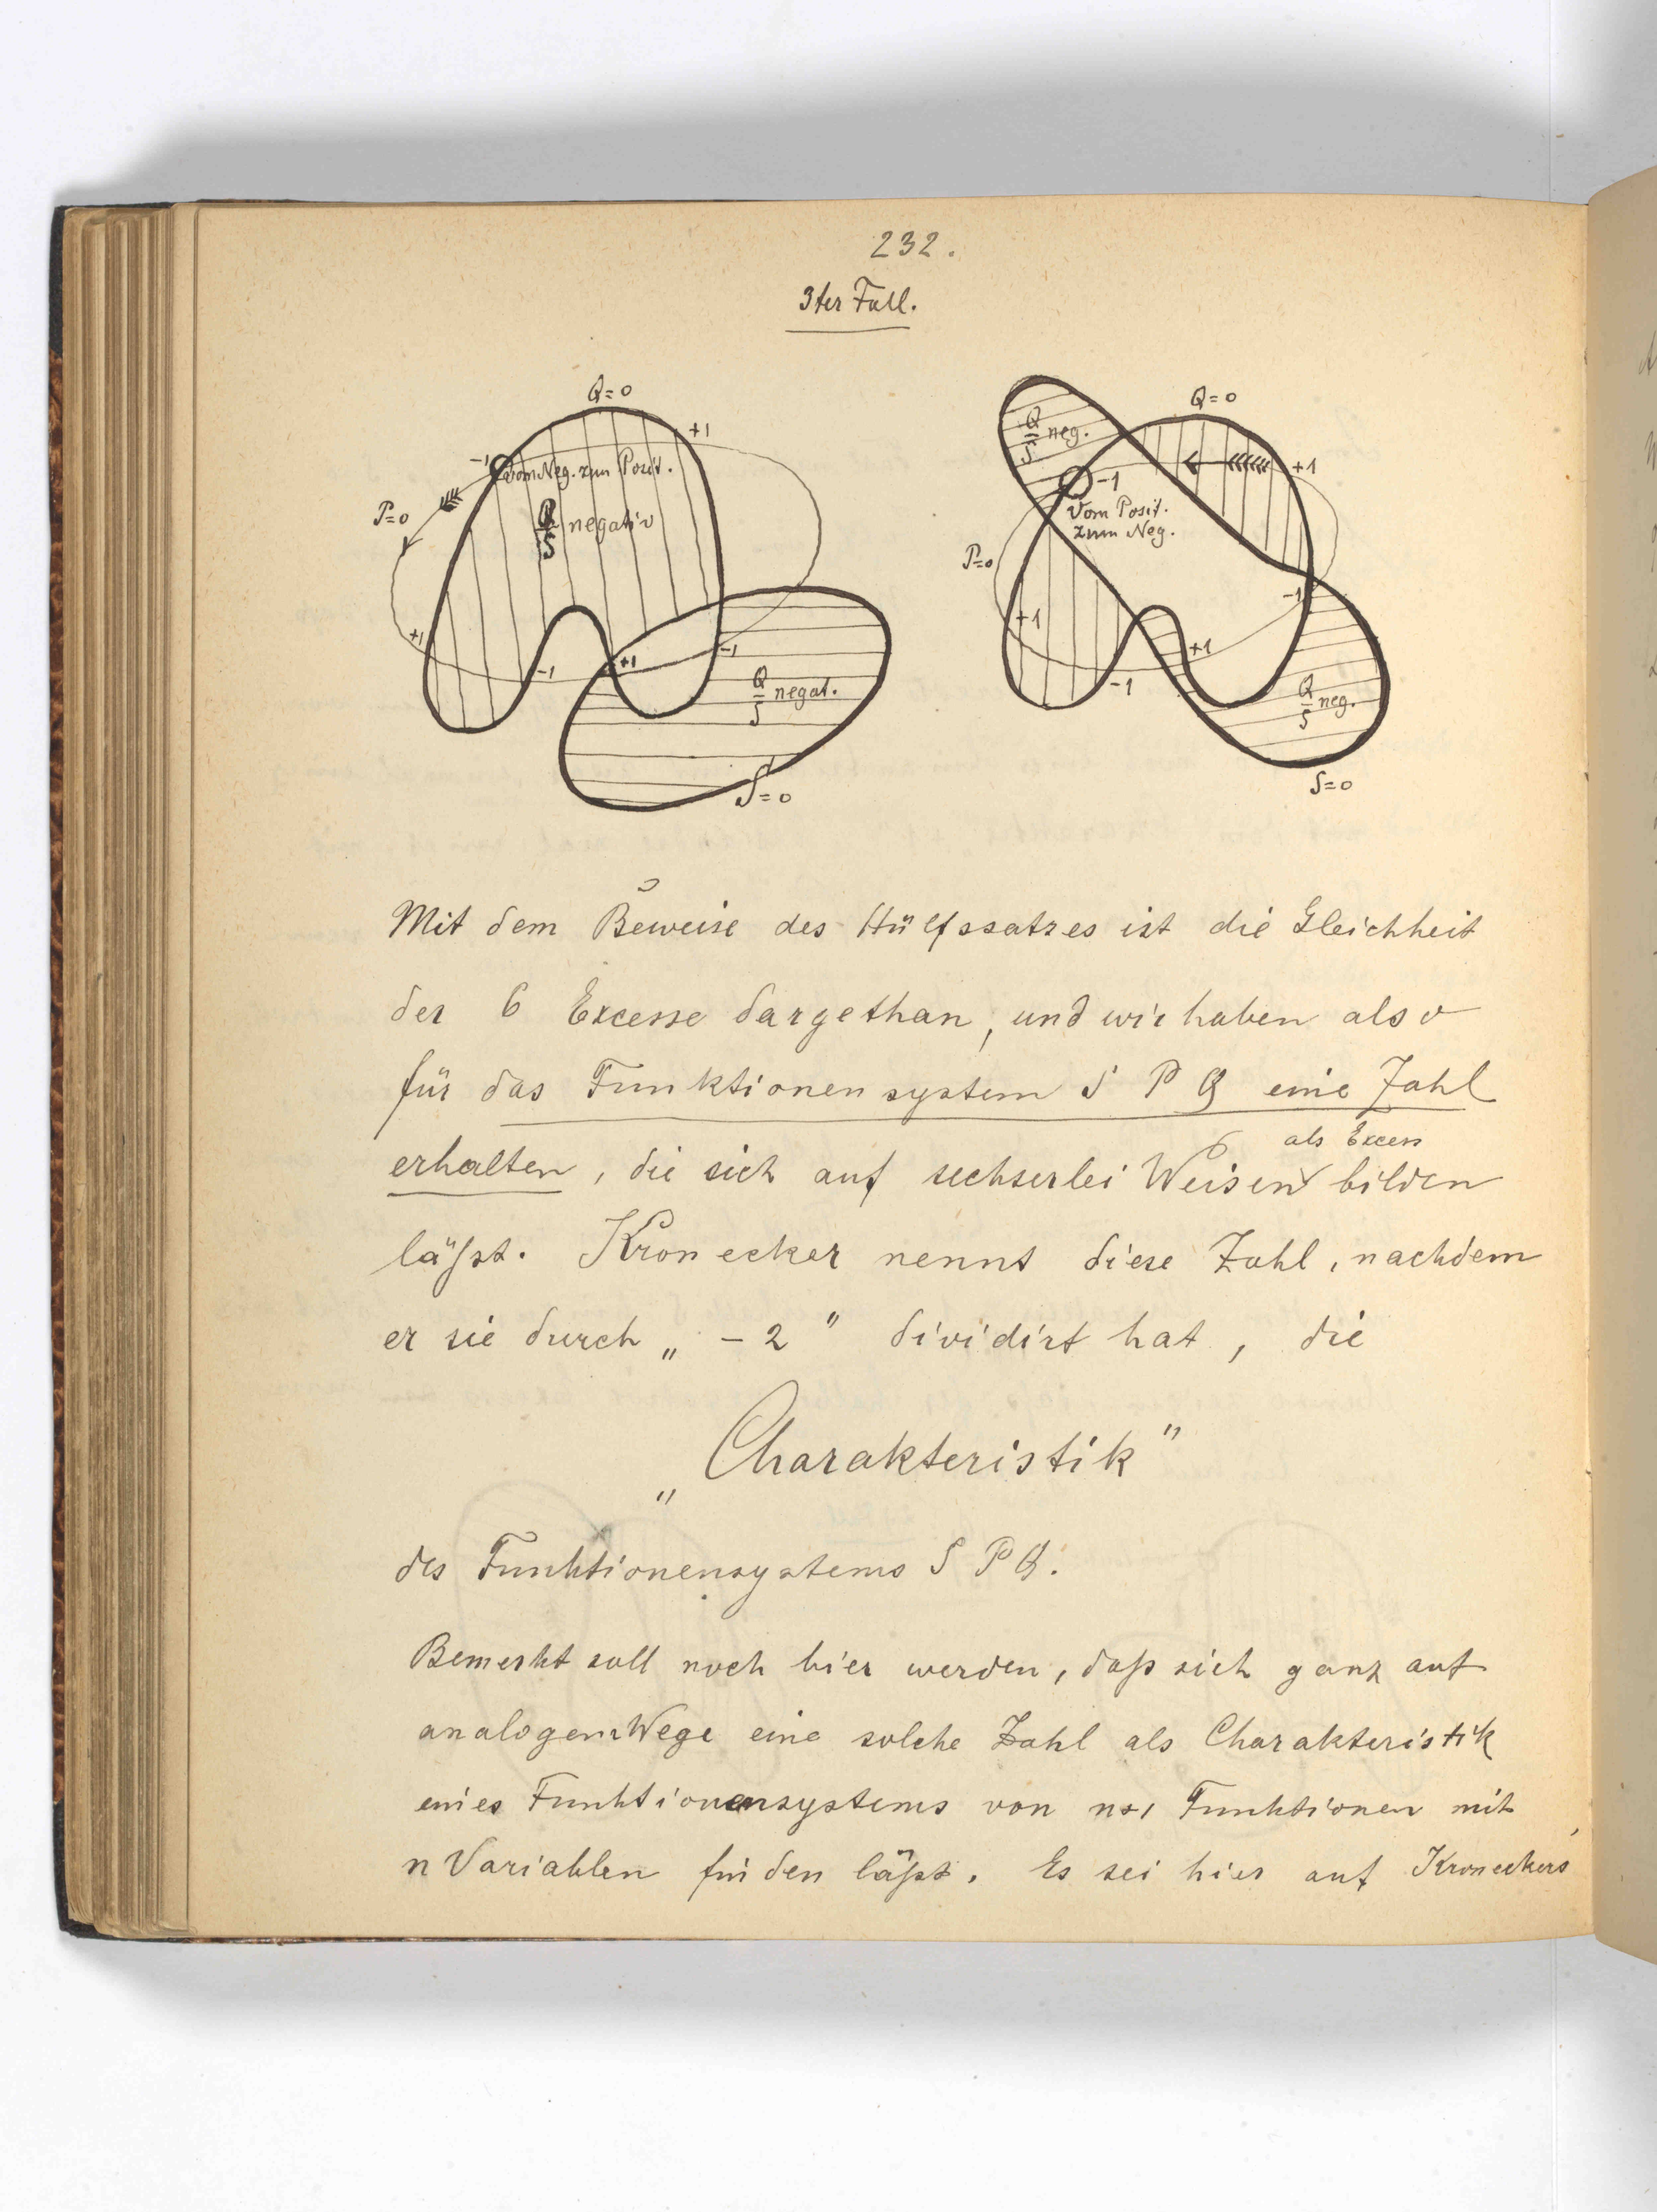 232.
3ter Fall.
Q=0
+1
-1
vom Neg. zum Posit.
P=0
Q/S negativ
+1
-1
+1
-1
Q/S negat.
S=0
Q=0
Q/S neg.
+1
-1
Vom Posit.
zum Neg.
P=0
-1
+1
+1
-1
Q/S neg.
S=0
Mit dem Beweise des Hülfssatzes ist die Gleichheit
der 6 Excesse dargethan, und wir haben also
für das Funktionensystem S P Q eine Zahl
als Excess
erhalten, die sich auf sechserlei Weisen bilden
läßt. Kronecker nennt diese Zahl, nachdem
er sie durch „ - 2 " dividirt hat, die
„Charakteristik"
des Funktionensystems S P Q.
Bemerkt soll noch hier werden, daß sich ganz auf
analogem Wege eine solche Zahl als Charakteristik
eines Funktionensystems von n+1 Funktionen mit
n Variablen finden läßt. Es sei hier auf Kroneckers